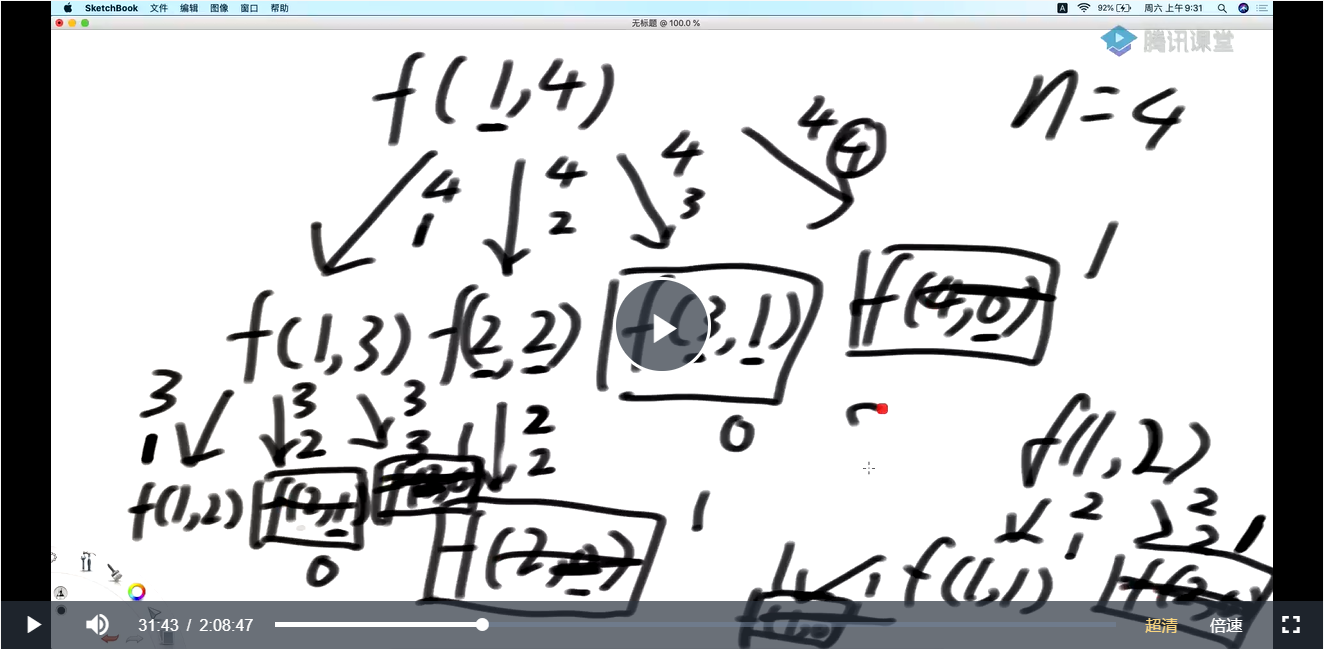 SketchBook 文件 编辑 图像 窗口 帮助 A 92% 周六 上午9:31
无标题 @ 100.0 %
腾讯课堂
f(1,4) n=4
4 4 4 4
1 2 3 4
f(1,3) f(2,2) f(3,1) f(4,0) 1
0
3 3 3 2
1 2 3 1 2
f(1,2) f(2,1) f(2,0) 1
0
f(1,2)
2 2
1 2 1
1 1 f(1,1)
f(1,0)
31:43 / 2:08:47 超清 倍速